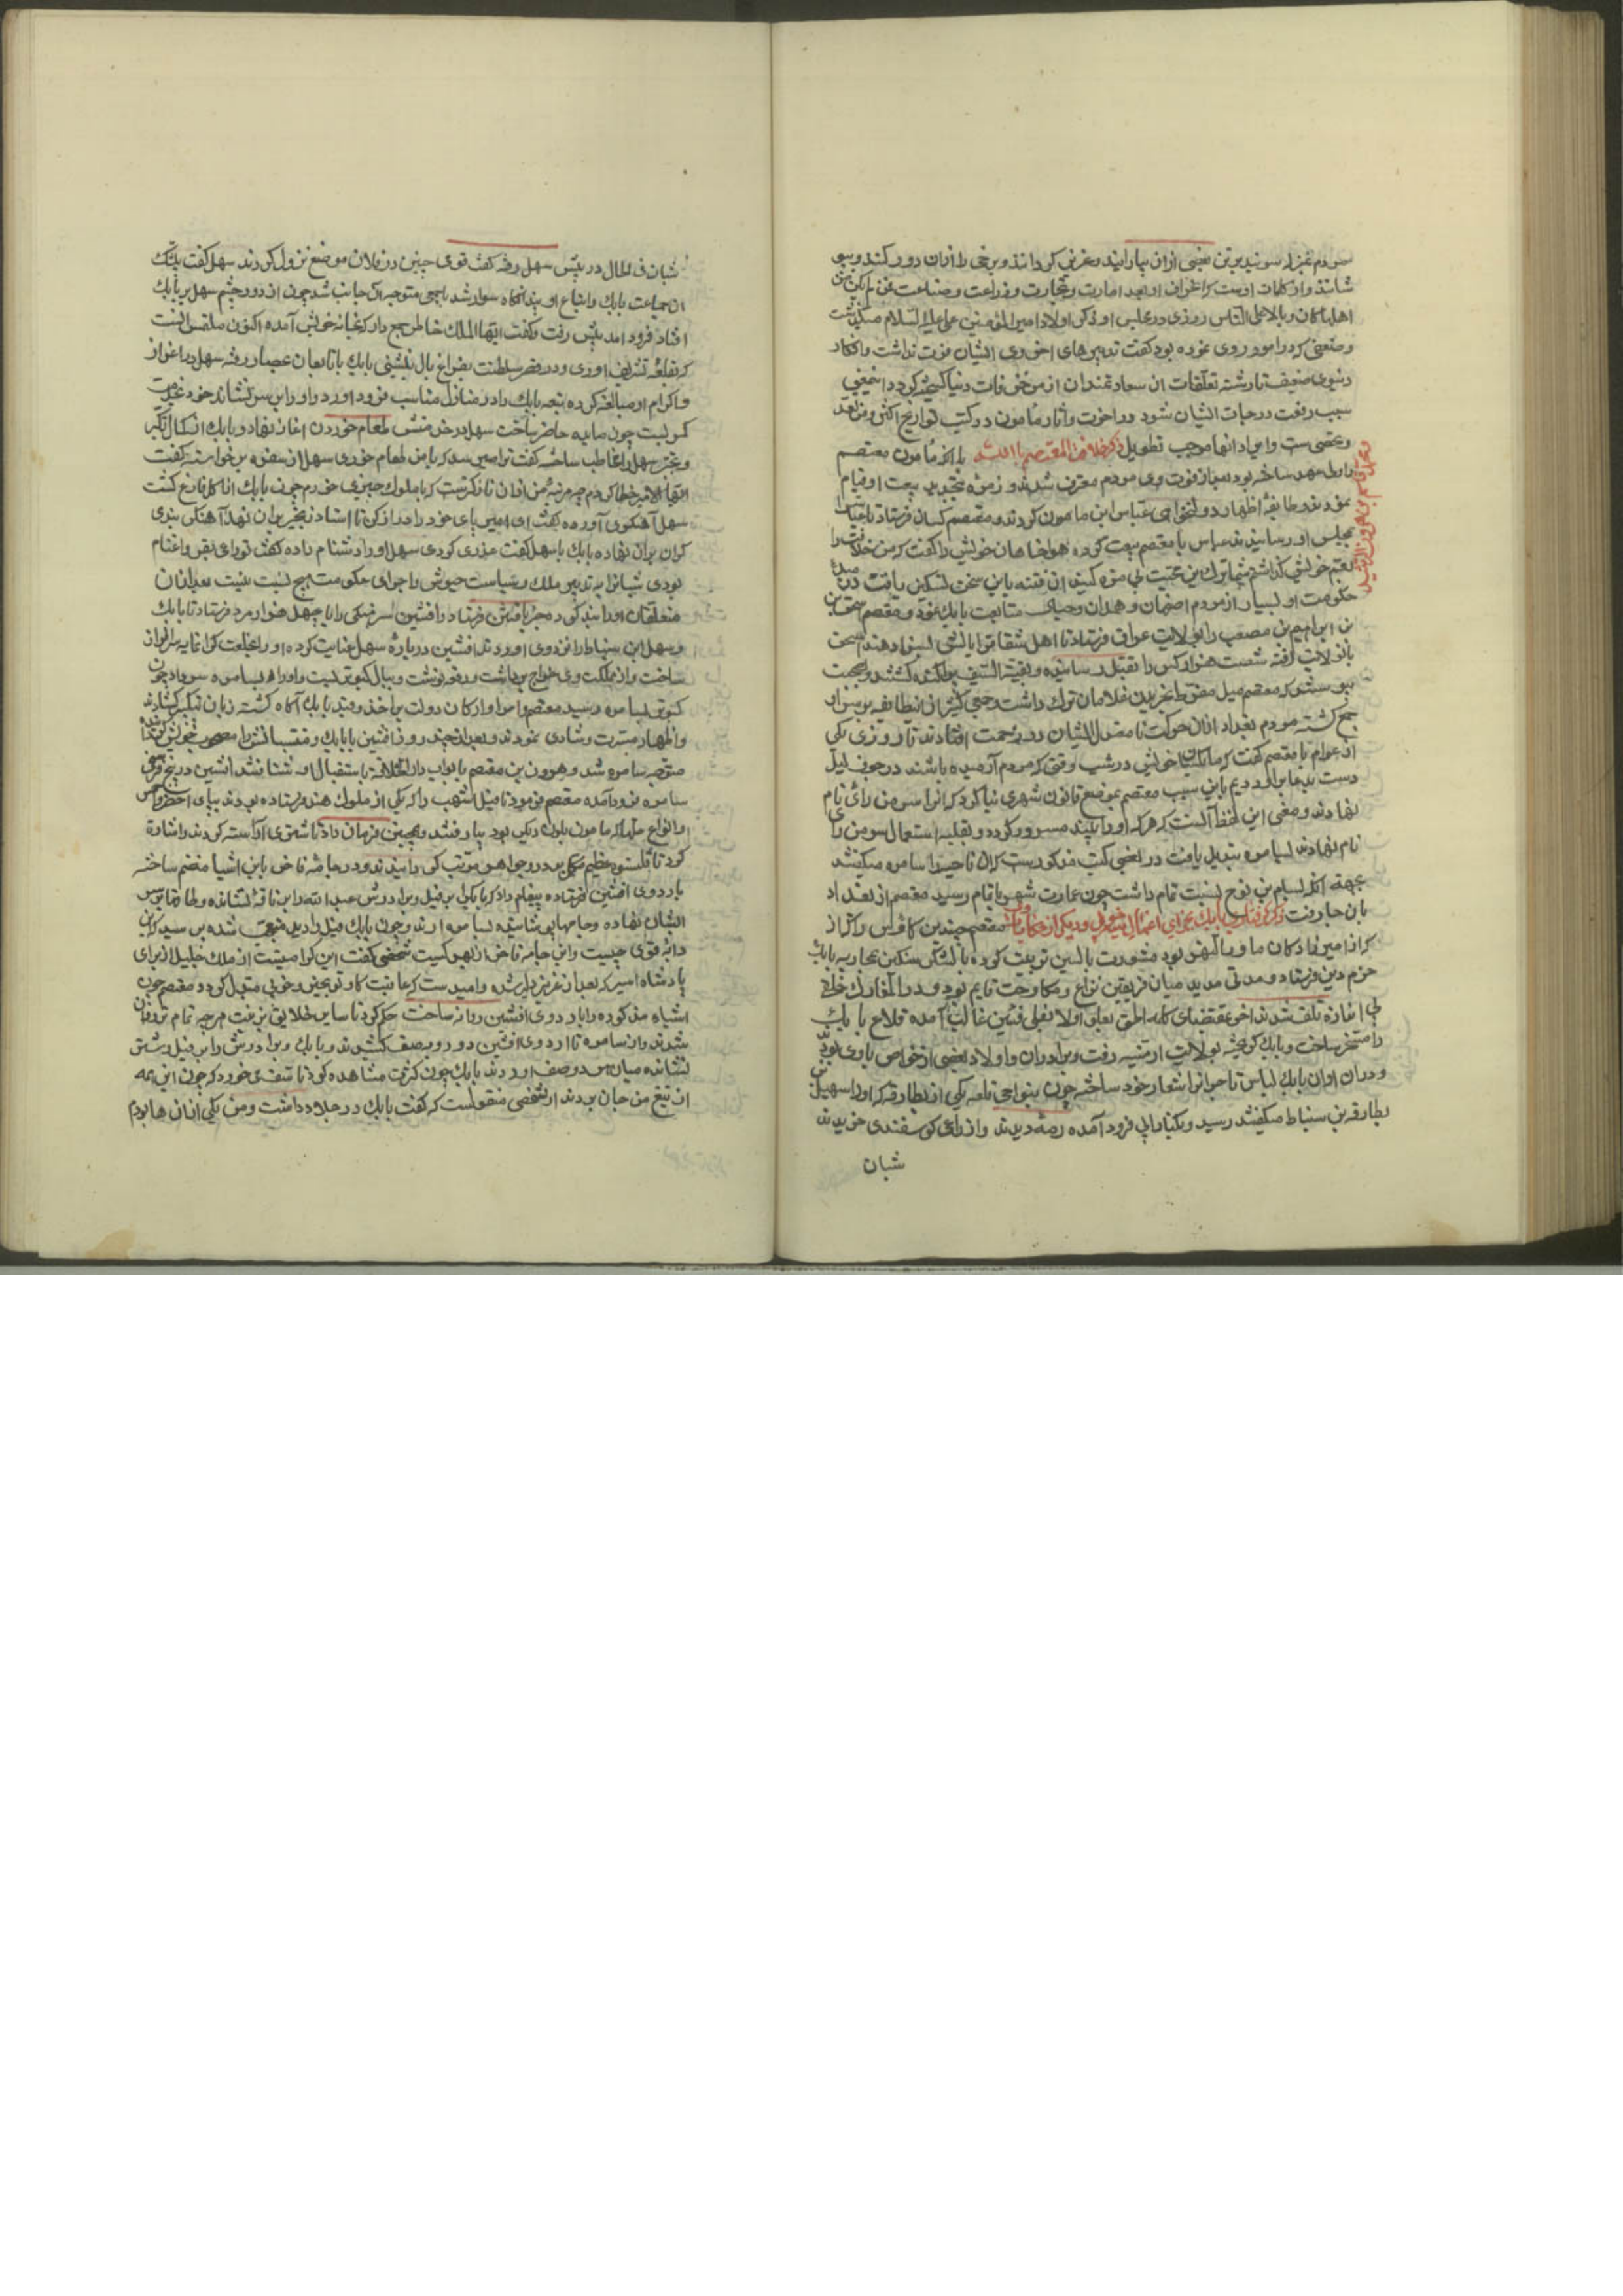 سر دم عزیز بعضی ازان بیارایند و عزیز کردانند و برخی را ازان دور کنند
شانند و از کلمات اوست که اخوان امارت و تجارت و زراعت و صناعت فمن لم یکن من
اهلها کان وبالا علی الناس روزی در مجلس او ذکر اولاد امیر المؤمنین علی علیه السلام میکذشت
و ضعفی که در امور روی نموده بود کفت تدبیرهای اخروی ایشان فوت نداشت و افکار
دنیوی ضعیف تا رشته تعلقات ان سعادتمندان از مزخرفات دنیا کسیخته کردد و انمعنی
سبب رفعت درجات ایشان شود در اخرت و اثار مامون در کتب تواریخ اکثر
و تحصی ست و ایراد انها موجب تطویل ذکر خلافة المعتصم بالله با انکه مامون معتصم
را ولی عهد ساخته بود بعد از فوت وی مردم معترف شدند و زمره بتجدید بیعت او قیام
نمودند و طایفه اظهار دولتخواهی عباس ابن مامون کردند و معتصم کسان فرستاد تا عباس را
بمجلس او رسانیدند عباس با معتصم بیعت کرده هواخاهان خویش را کفت که من خلافت را
بعم خویش کذاشتم شما ترک این محبت بی مزه کنید ان فتنه باین سخن تسکین یافت در مبدء
حکومت او بسیار از مردم اصفهان و همدان متابعت بابک نمود و معتصم اسحق بن
ابراهیم بن مصعب را بولایت عراق فرستاد تا اهل شقاق را بسزا دهند اسحق
بان ولایت رفته شصت هزار کس را بقتل رسانیده و بقیة السیف پراکنده کشتند و بصحت
پیوسته که معتصم میل مفرط بخریدن غلامان ترک داشت و جمعی کثیر از انطایفه بر سر او
جمع کشته مردم بغداد ازان حرکت نا مقبول ایشان در زحمت افتادند تا روزی یکی
از عوام با معتصم کفت که ما بکسان خویش در شب وقتی که مردم آرمیده باشند در جوف لیل
دست بدعا براوردیم باین سبب معتصم بموضع قاطون شهری بنا کرد که انرا سر من رای نام
نهادند و معنی این لفظ آنست که هر که او را بیند مسرور کردد و بغلبه استعمال سر من رای
نام نهادند بسامره تبدیل یافت در بعضی کتب مذکورست که ان ناحیه را سامره میکفتند
بجهة انکه بسام بن نوح نسبت تمام داشت چون عمارت شهر باتمام رسید معتصم از بغداد
بان جا رفت ذکر کرفتاری بابک بجزای اعمال خویش و دیکر از حکایات معتصم حیدر بن کاوس را که از
که از امیرزادکان ماوراالنهر بود مشورت تربیت کرده با لشکر سنکین بمحاربه بابک
خرم دین فرستاد و مدتی مدید میان فریقین نزاع و مکاوحت قایم بود و در المعارک خلایق
بی اندازه تلف شدند اخر بمقتضای کلمه الحق یعلو و لا یعلی افشین غالب آمده قلاع بابک
را مسخر ساخت و بابک کریخته بولایت ارمنیه رفت و برادران و اولاد و بعضی از خواص با وی بودند
و دران اوان بابک لباس تاجرانرا شعار خود ساخته چون بنواحی قلعه یکی از بطارقه که او را سهل بن
بطارقه بن سنباط میکفتند رسید و بکنار ابی فرود آمده رمه دیدند و از راعی کوسفندی خریدند
شبان
شبان فی الحال در پیش سهل رفته کفت قومی چنین در فلان موضع نزول کردند سهل کفت بیشک
ان جماعت بابک و اتباع او یند انکاه سوار شد با جمعی متوجه آن جانب شد چون از دور چشم سهل بر بابک
افتاد فرود امد پیش رفت و کفت ایها الملک خاطر جمع دار که بخانه خویش آمده اکنون ملتمس انست
که بقلعه تشریف اوری و در قصر سلطنت بفراغ بال بنشینی بابک با تابعان بحصار رفته سهل در اعزاز
و اکرام او مبالغه کرده تبعه بابک را در منازل مناسب فرود اورد و او را بر سریر نشاند خود بخدمت
کمر بست چون مایده حاضر ساخت سهل در خدمتش بطعام خوردن اغاز نهاد و بابک از کمال تکبر
و تجبر سهل را مخاطب ساخته کفت ترا میرسد که با من طعام خوری سهل از سفره برخواسته کفت
ایها الامیر خطا کردم چه مرتبه من ازان نازلترست که با ملوک چیزی خورم چون بابک از اکل فارغ کشت
سهل آهنکری آورده کفت ای امیر پای خود را دراز کن تا استاد زنجیر بران نهد آهنکر بندی
کران بران نهاده بابک با سهل کفت غدری کردی سهل او را دشنام داده کفت تو راعی بقر و اغنام
بودی شبانرا به تدبیر ملک و سیاست جیوش و اجرای حکومت هیچ نسبت نیست بعد ازان
متعلقان او را بند کرده خبر بافشین فرستاد و افشین سرهنکی را با چهل هزار مرد فرستاد تا بابک
و سهل ابن سنباط را نزد وی اوردند افشین درباره سهل عنایت کرده او را بخلعت کرانمایه سرافراز
ساخت و از مملکت وی خراج برداشت و رقعه نوشت و ببال کبوتر بست و او را بسامره سر داد چون
کبوتر بسامره رسید معتصم و امرا و ارکان دولت بر اخذ و قید بابک آکاه کشته زبان بتکبیر کشادند
و اظهار مسرت و شادی نمودند و بعد از چند روز افشین با بابک و منتسبانش را مصحوب خویش کرد
متوجه سامره شد و هرون بن معتصم با نواب دار الخلافة باستقبال او شتافتند افشین در پنج فرسخی
سامره فرود آمده معتصم فرمود تا فیل اشهب را که یکی از ملوک هند فرستاده بودند بدیبای احمر و اخضر
و انواع حلها که مامون ملوک رنکی بود بیارستند و همچنین فرمان داد تا شتری آراسته کردند و اشارة
کرد تا قلنسوه عظیم مکلل بدر و جواهر مرتب کردانیدند و دو جامه فاخر باین اشیا منضم ساخته
باردوی افشین فرستاده پیغام داد که بابک را بر فیل و برادرش عبد الله را بر ناقه نشانده و طاقها بر سر
ایشان نهاده و جامها پوشانیده بسامره ارند و چون بابک فیل را دید متعجب شده پرسید که این
دابه قوی چیست و این جامه فاخر از بهر کیست شخصی کفت این کرامیتست از ملک جلیل از برای
پادشاه اسیر که بعد از عزیز ذلیل شده و امید ست که عاقبت کار تو بخیر و خوبی متبدل کردد و معتصم چون
اشیاء مذکوره را باردوی افشین روانه ساخت حکم کرد تا سایر خلایق بزینت هر چه تمام تر وقوف
شدند و از سامره تا اردوی افشین دو رویه صف کشیدند و بابک و برادرش را بر فیل و شتر
نشانده میان هر دو صف اوردند بابک چون کثرت مشاهده کرد تاسف می خورد که چون این همه
از تیغ من جان بردند از شخصی منقولست که کفت بابک ده جلاد داشت و من یکی ازان ها بودم